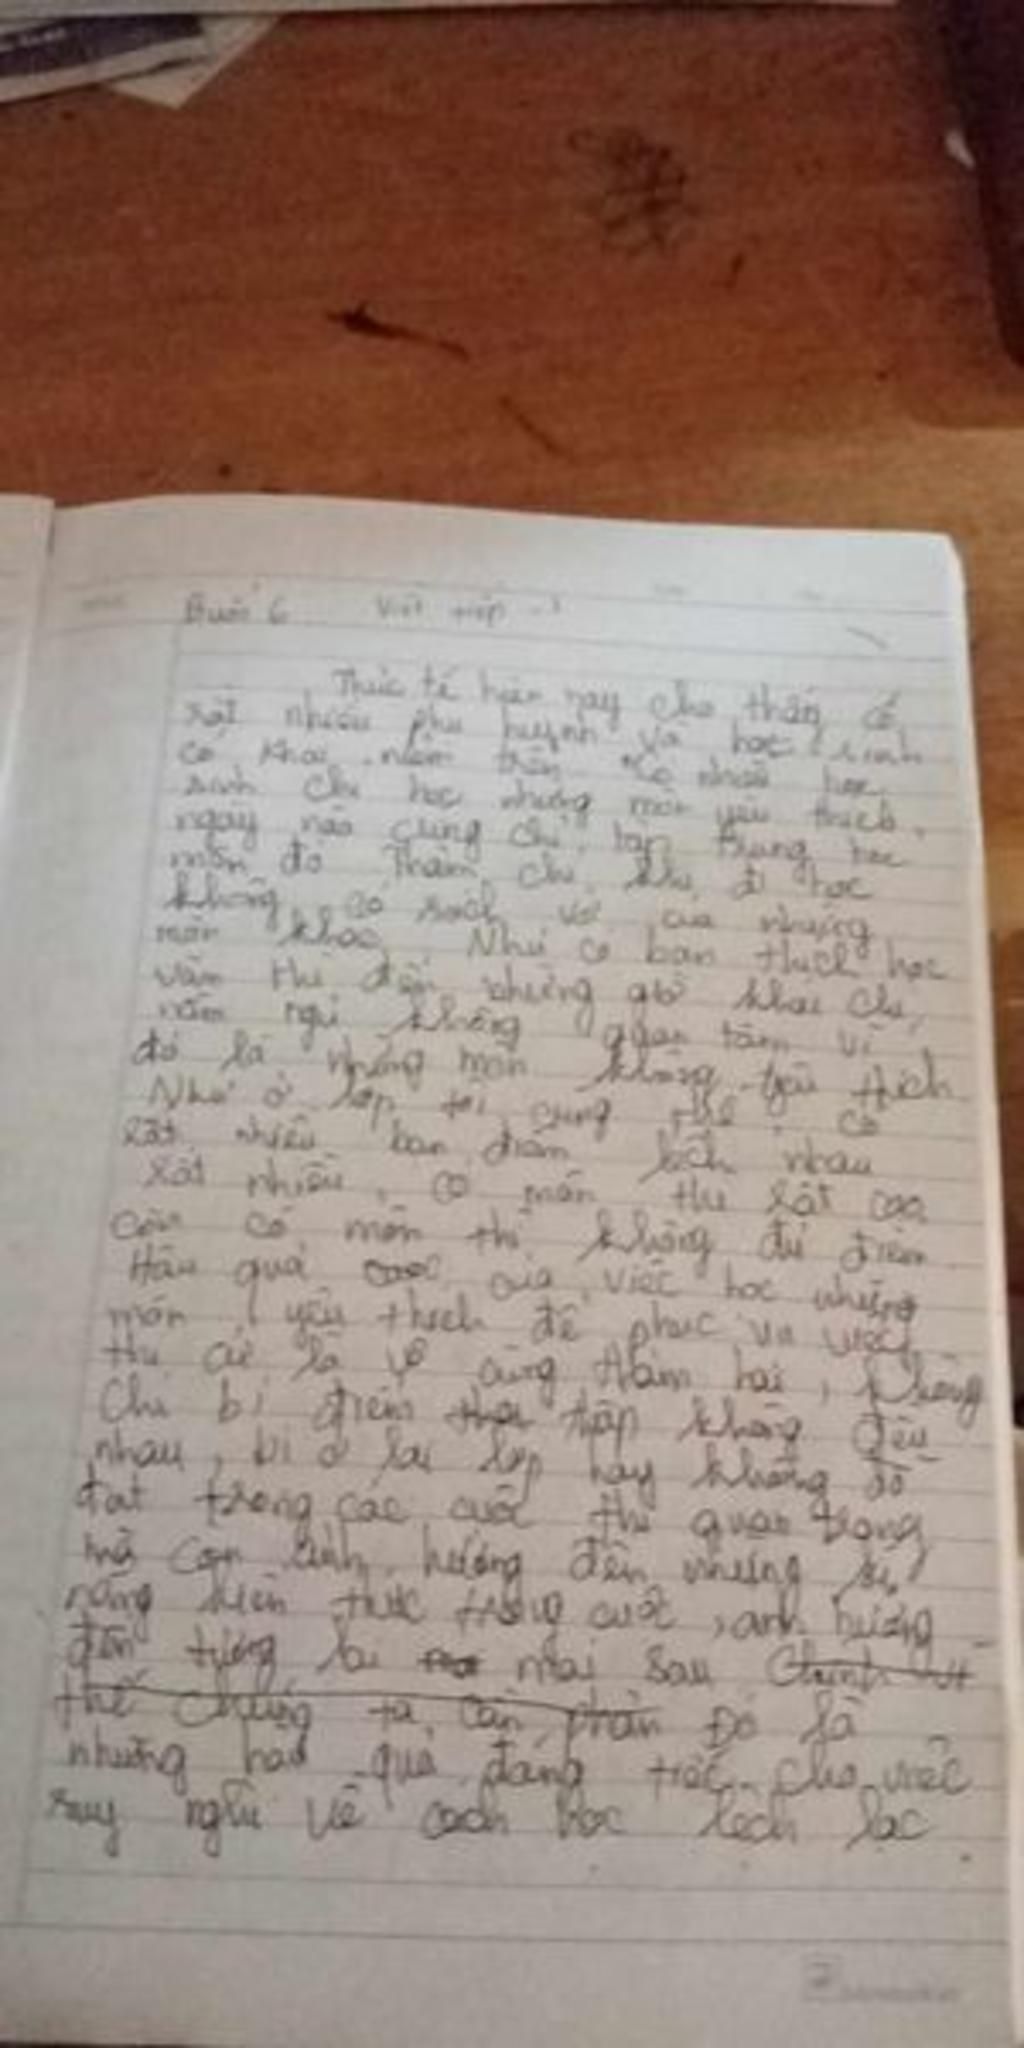 Buổi 6 Viết tiếp
Thực tế hiện nay cho thấy có
rất nhiều phụ huynh và học sinh
có khái niệm trên. Có nhiều học
sinh chỉ học những môn yêu thích,
ngày nào cũng chỉ tập trung học
môn đó. Thậm chí khi đi học
không có sách vở của những
môn khác. Như có bạn thích học
văn thì đến những giờ khác chỉ
nằm ngủ không quan tâm vì
đó là những môn không yêu thích
Như ở lớp tôi cũng thế, có
rất nhiều bạn điểm lệch nhau
rất nhiều, có môn thì rất cao
còn có môn thì không đủ điểm.
Hậu quả của việc học những
môn yêu thích để phục vụ việc
thi cử là vô cùng thảm hại, không
chỉ bị điểm thấp không đều
nhau, bị ở lại lớp hay không đỗ
đạt trong các cuộc thi quan trọng
mà còn ảnh hưởng đến những kĩ
năng hiện thực trong cuộc, ảnh hưởng
đến tương lai mai sau Chính vì
thế chúng ta cần phần Đó là
những hậu quả đáng tiếc cho việc
suy nghĩ về cách học lệch lạc